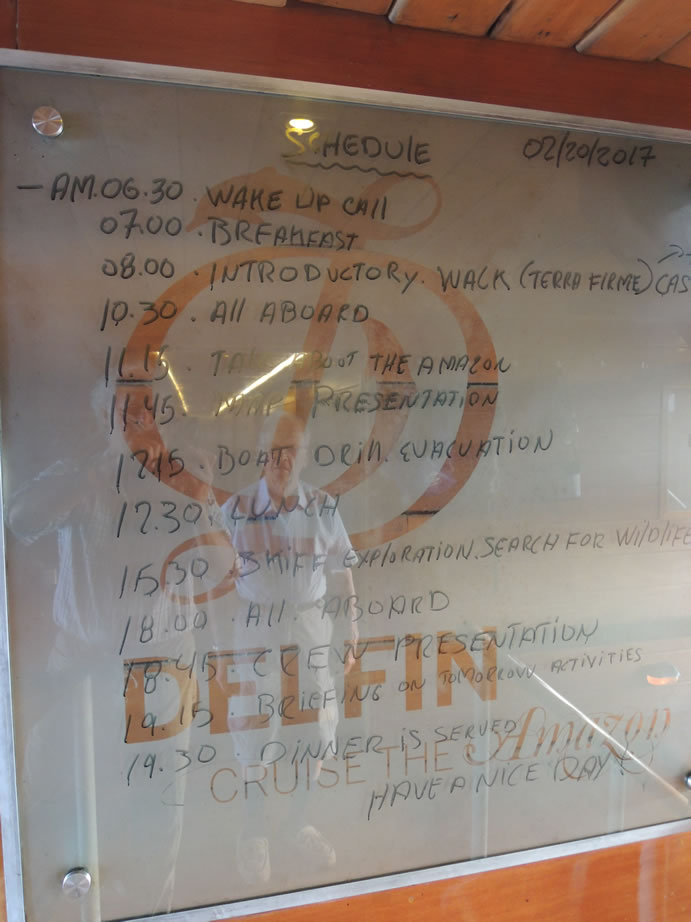 SCHEDULE 02/20/2017
— AM.06.30 . WAKE UP CAll
07.00 . BREAKFAST
08.00 . INTRODUCTORY. WALK (TERRA FIRME) CAS
10.30 . All ABOARD
11.15 . THE AMAZON
11.45 . PRESENTATION
1215 . BOAT DRill. EVACUATION
12.30 . LUNCH
15.30 . SKIFF EXPlORATION. SEARCH FOR WilDlIFE
18.00 . All. ABOARD
18.45 . CREW PRESENTATION
19.15 . BRIEFING ON TOMORROW ACTIVITIES
19.30 . DINNER IS SERVED
HAVE A NICE DAY
DELFIN
CRUISE THE Amazon